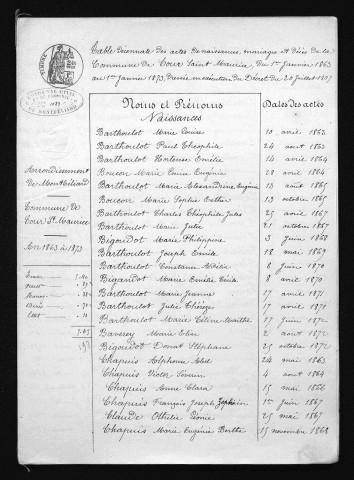 Table Décennale des actes de naissance, mariage et Décès de la
Commune de Cour Saint Maurice, du 1er Janvier 1863
au 1er Janvier 1873, Dressée en exécution du Décret du 20 Juillet 1807
Arrondissement
de Montbéliard
Commune de
Cour St Maurice
An 1863 à 1873
Noms et Prénoms
Dates des actes
Naissances
Barthoulot Marie Louise 10 avril 1863
Barthoulot Paul Théophile 24 août 1863
Barthoulot Hortense Emélie 14 avril 1864
Boucon Marie Louise Eugénie 28 avril 1864
Barthoulot Marie Alexandrine Eugénie 13 août 1865
Boucon Marie Sophie Esther 13 octobre 1865
Barthoulot Charles Théophile Jules 25 avril 1867
Barthoulot Marie Julie 21 octobre 1867
Bigourdot Marie Philippine 3 Juin 1868
Barthoulot Joseph Emile 18 mai 1869
Barthoulot Constant 6 Juin 1870
Marie Emélie 8 avril 1870
Barthoulot Marie Jeanne 17 avril 1871
Barthoulot Julie Thérèse 17 avril 1871
Barthoulot Marie Céline 17 Juin 1872
Baverey Marie Elise 2 août 1872
Bigourdot Donat Stéphane 25 octobre 1872
Chapuis Alphonse Abel 24 mai 1863
Chapuis Victor Séverin 4 août 1864
Chapuis Anne Clara 15 mai 1866
Chapuis François Joseph 1er Juin 1867
Claude Othilie Léonie 25 mai 1867
Chapuis Marie Eugénie Berthe 15 novembre 1868